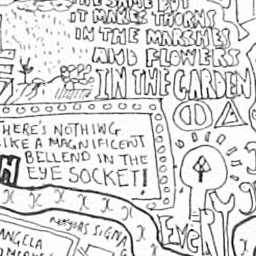 THE SAME BUT
IT MAKES THORNS
IN THE MARSHES
AND FLOWERS
IN THE GARDEN
HERE'S NOTHING
LIKE A MAGNIFICENT
BELLEND IN THE
EYE SOCKET!
SIGMA
ANGELA